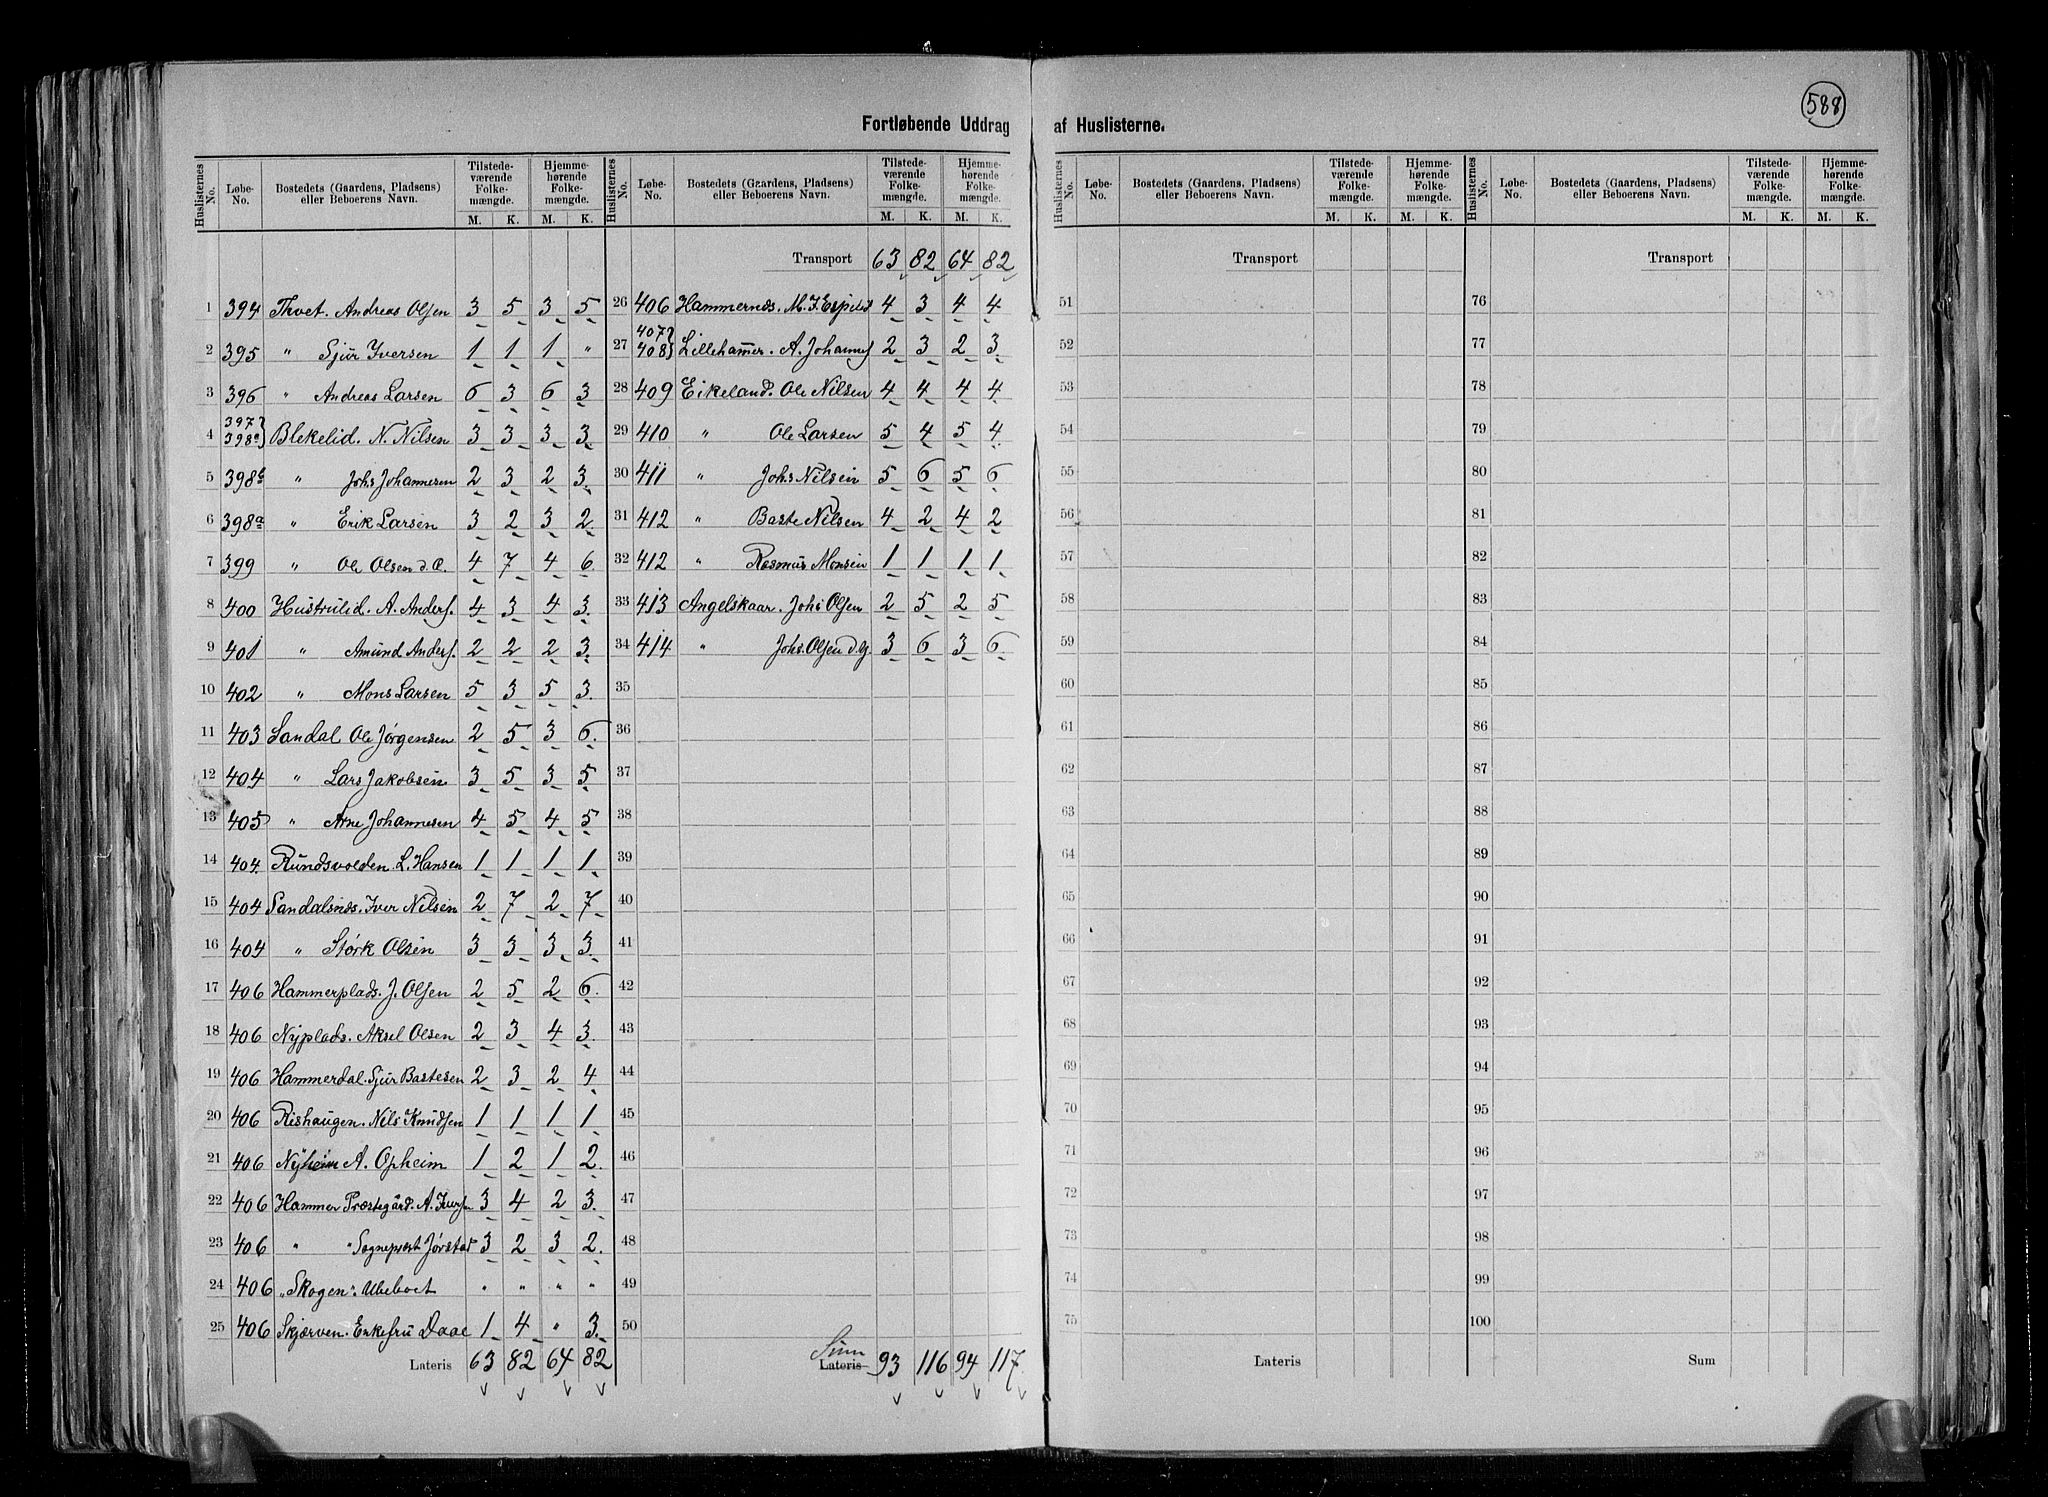 588
Fortløbende Uddrag af Huslisterne.
Huslisternes No. Løbe-No. Bostedets (Gaardens, Pladsens) eller Beboerens Navn. Tilstedeværende Folkemængde. M. K. Hjemmehørende Folkemængde. M. K.
1 394 Thvet. Andreas Olsen 3 5 3 5
2 395 " Sjur Iversen 1 1 1 "
3 396 " Andreas Larsen 6 3 6 3
4 397 398a } Blekelid. N. Nilsen 3 3 3 3.
5 398b " Johs Johannesen 2 3 2 3.
6 398a " Erik Larsen 3 2 3 2.
7 399 " Ole Olsen d. Æ. 4 7 4 6.
8 400 Hustrulid. A. Anders. 4 3 4 3.
9 401 " Amund Anders. 2 2 2 3.
10 402 " Mons Larsen 5 3 5 3.
11 403 Sandal Ole Jørgensen 2 5 3 6.
12 404 " Lars Jakobsen 3 5 3 5
13 405 " Arne Johannesen 4 5 4 5
14 404. Rundsvolden. L. Hansen 1 1 1 1
15 404 Sandalsnes. Iver Nilsen 2 7 2 7
16 404 " Størk Olsen 3 3 3 3.
17 406 Hammerplads. J. Olsen 2 5 2 6.
18 406 Nyplads. Aksel Olsen 2 3 4 3.
19 406 Hammerdal. Sjur Bastesen 2 3 2 4
20 406 Rishaugen. Nils Knudsen 1 1 1 1
21 406 Nyheim A. Opheim 1 2 1 2.
22 406 Hammer Præstegård. A. Ivers 3 4 2 3.
23 406 " " Sogneprest Jørstad 3 2 3 2.
24 406 "Skogen": Ubeboet " " " "
25 406 Skjærven. Enkefru Daae 1 4 " 3.
Lateris 63 82 64 82
Huslisternes No. Løbe-No. Bostedets (Gaardens, Pladsens) eller Beboerens Navn. Tilstedeværende Folkemængde. M. K. Hjemmehørende Folkemængde. M. K.
Transport 63 82 64 82
26 406 Hammernes. M. J. Espelid 4 3 4 4
27 407 408 } Lillehammer. A. Johannes 2 3 2 3
28 409 Eikeland. Ole Nilsen 4 4 4 4
29 410 " Ole Larsen 5 4 5 4
30 411 " Johs Nilsen 5 6 5 6
31 412 " Baste Nilsen 4 2 4 2
32 412 " Rasmus Monsen 1 1 1 1
33 413 Angelskaar. Johs Olsen 2 5 2 5
34 414 " Johs. Olsen d. y. 3 6 3 6
35
36
37
38
39
40
41
42
43
44
45
46
47
48
49
50
Sum
Lateris 93 116 94 117.
Huslisternes No. Løbe-No. Bostedets (Gaardens, Pladsens) eller Beboerens Navn. Tilstedeværende Folkemængde. M. K. Hjemmehørende Folkemængde. M. K.
Transport
51
52
53
54
55
56
57
58
59
60
61
62
63
64
65
66
67
68
69
70
71
72
73
74
75
Lateris
Huslisternes No. Løbe-No. Bostedets (Gaardens, Pladsens) eller Beboerens Navn. Tilstedeværende Folkemængde. M. K. Hjemmehørende Folkemængde. M. K.
Transport
76
77
78
79
80
81
82
83
84
85
86
87
88
89
90
91
92
93
94
95
96
97
98
99
100
Sum